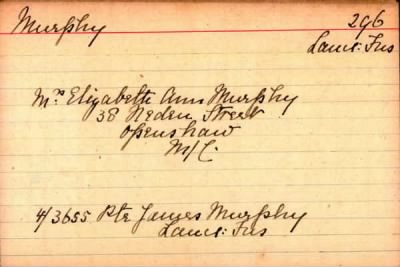 Murphy 296
Lanc: Fus
Mrs Elizabeth Ann Murphy
38 Neden Street
Openshaw
M/C.
4/3655 Pte James Murphy
Lanc: Fus